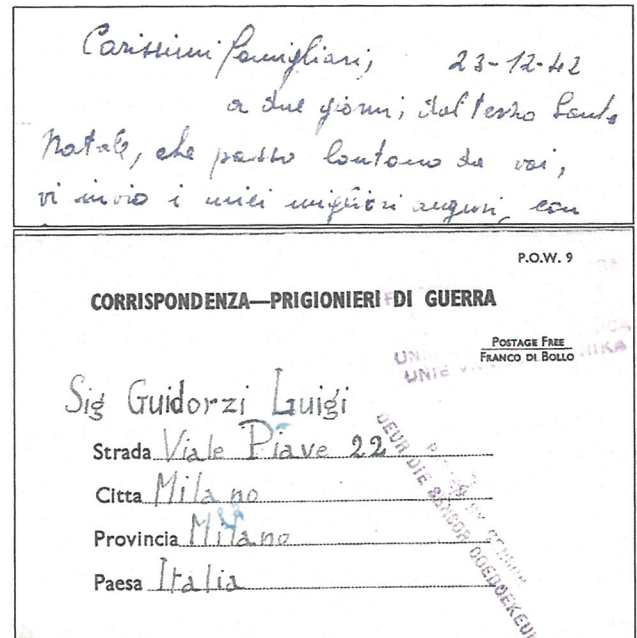 Carissimi famigliari, 23-12-42
a due giorni, dal terzo Santo
Natale, che passo lontano da voi,
vi invio i miei migliori auguri, con
P.O.W. 9
CORRISPONDENZA—PRIGIONIERI DI GUERRA
POSTAGE FREE
FRANCO DI BOLLO
UNIE
Sig Guidorzi Luigi
Strada Viale Piave 22
Citta Milano
Provincia Milano
Paesa Italia
DEUR DIE SENSOR GOEDGEKEUR